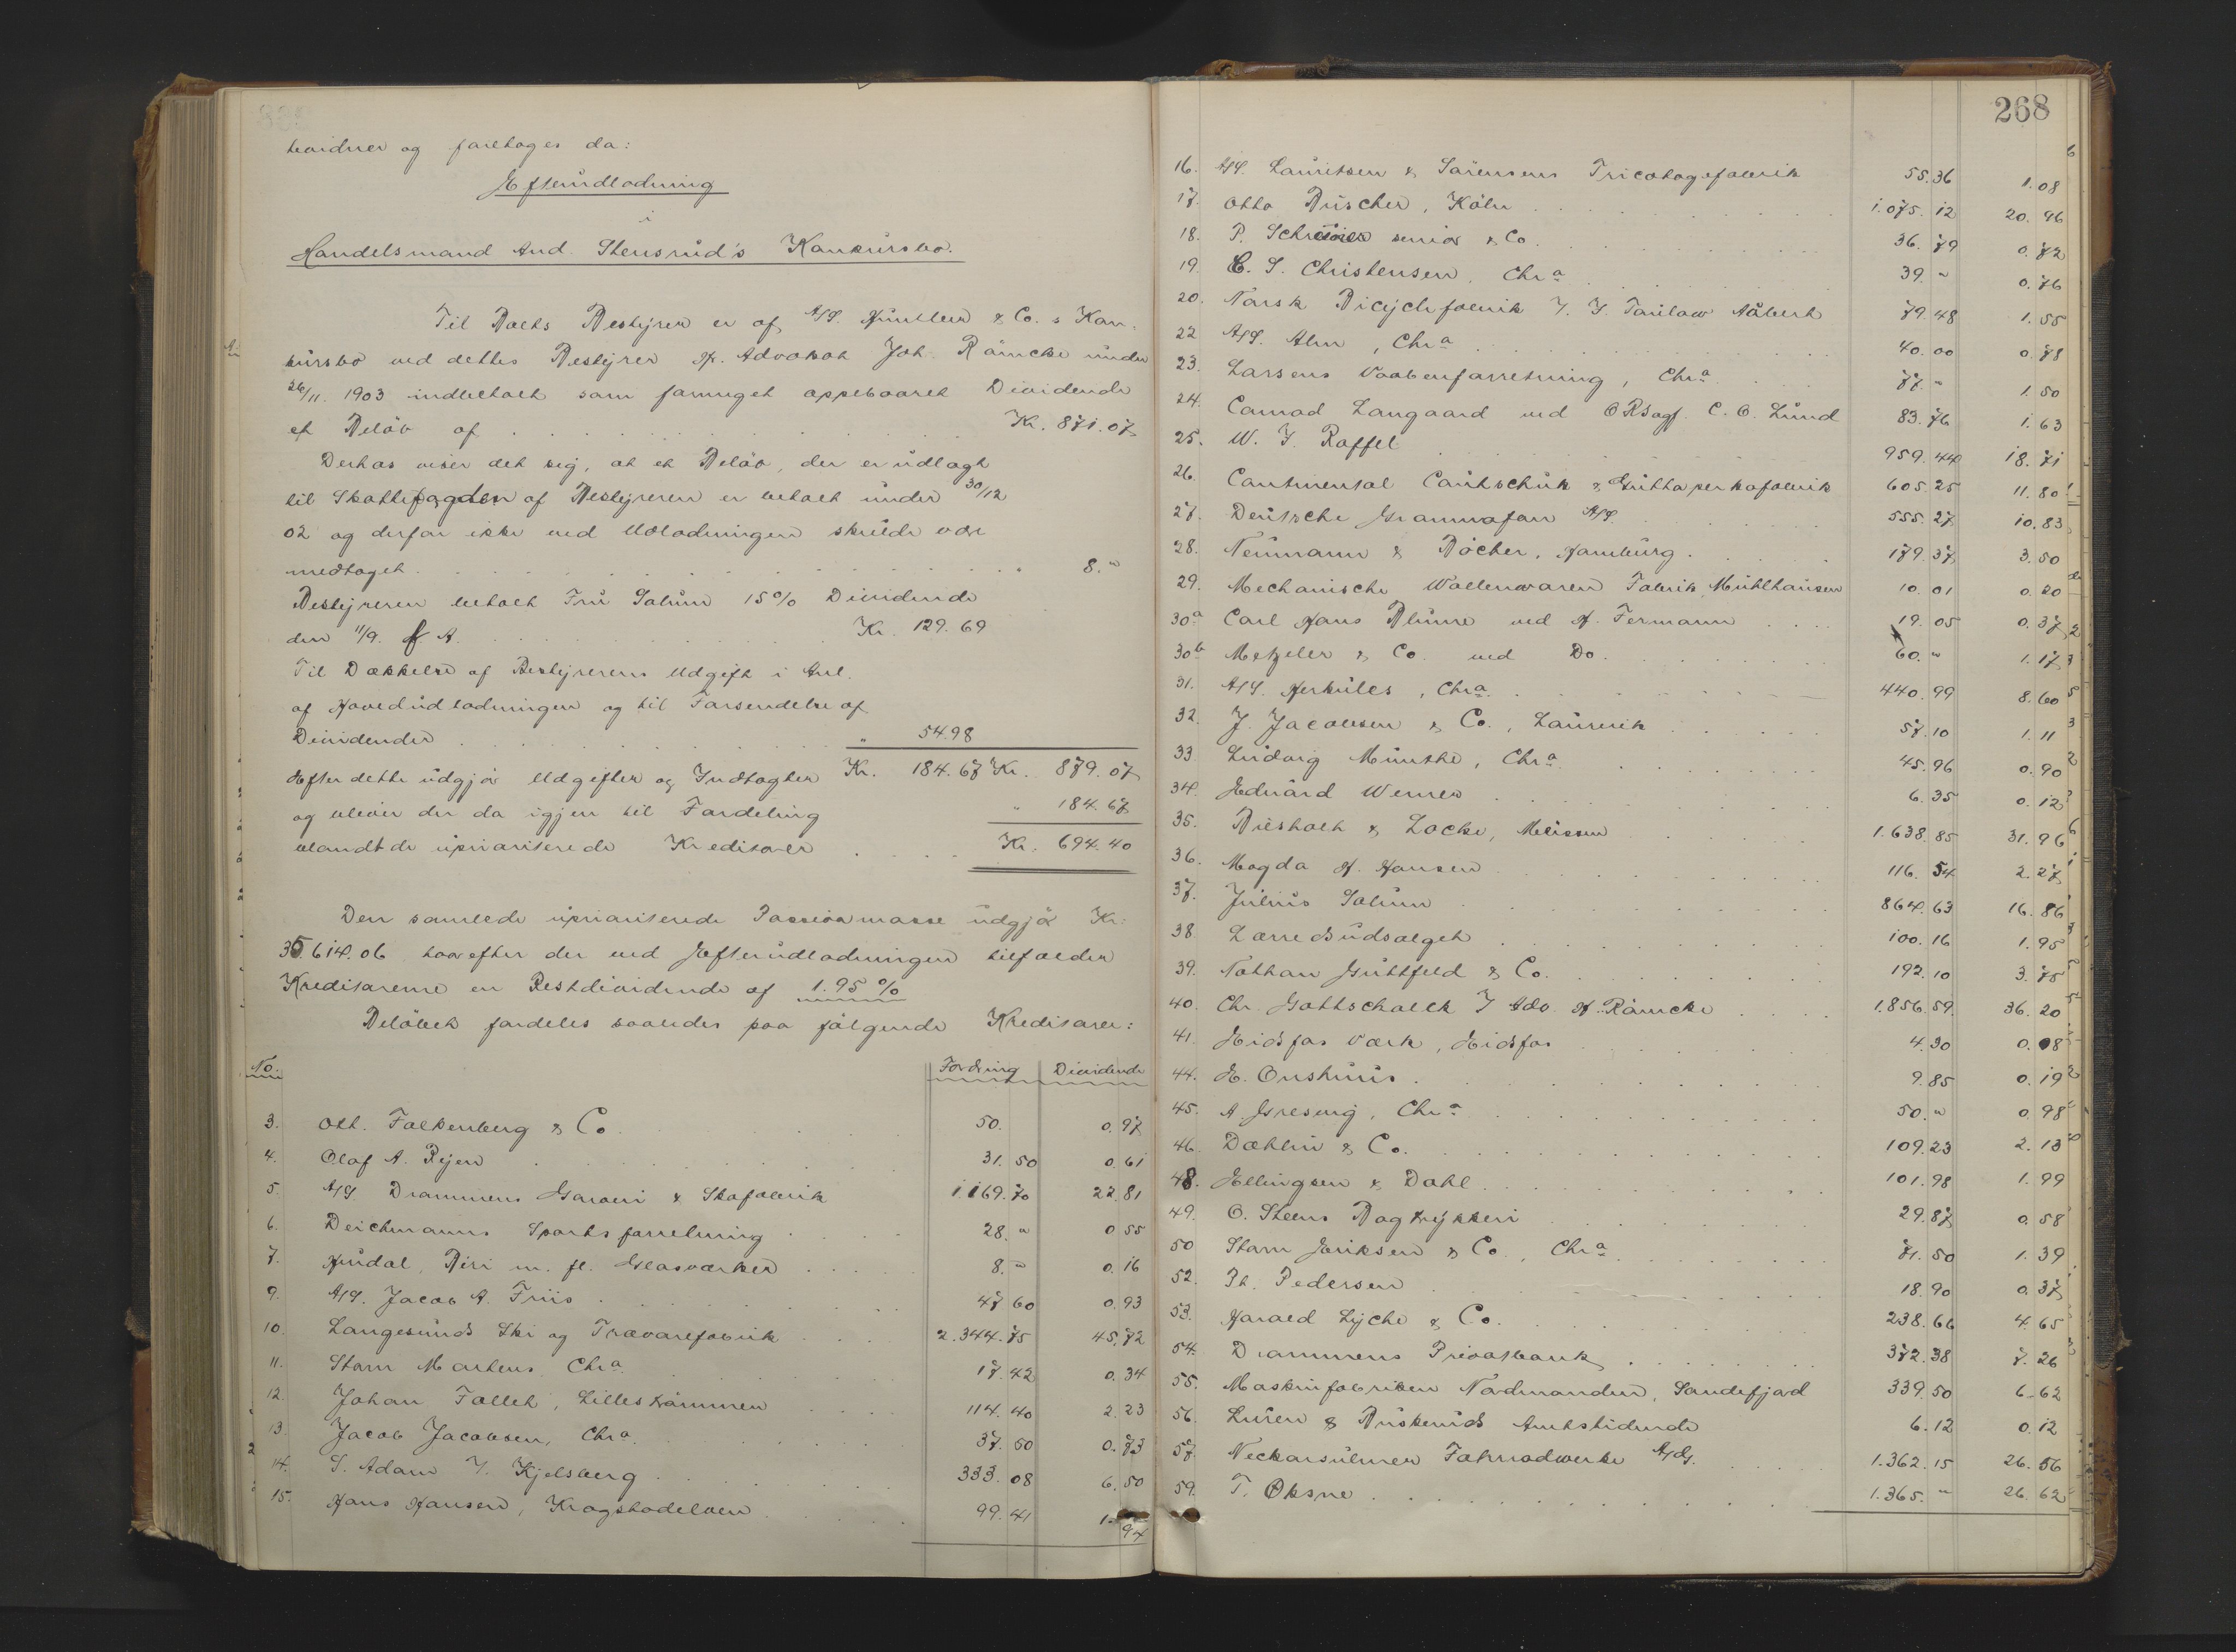 foretages da:
Efterudlodning
i
Handelsmand And. Stensrud's Konkursbo.
Til Boets Bestyrer er af A/S. Küntler & Co. s Kon-
kursbo ved dettes Bestyrer H. Advokat Joh. Römcke under
26/11. 1903 indbetalt som formeget oppebaaret Dividende
et Beløb af . . . Kr. 871.07
Derhos viser det sig, at et Beløb, der er udlagt
til Skattefogden af Bestyreren er betalt under 30/12
02 og derfor ikke ved Udlodningen skulde være
medtaget . . . 8.„
Bestyreren betalt Fru Solum 15% Dividende
den 11/9. f. A. . . . Kr. 129.69
Til Dækkelse af Bestyrerens Udgift i Anl.
af Hovedudlodningen og til Forsendelse af
Dividender . . . „ 54.98
Efter dette udgjør Udgifter og Indtægter Kr. 184.67 Kr. 879.07
og bliver der da igjen til Fordeling „ 184.67
blandt de uprioriterede Kreditorer . . . Kr. 694.40
Den samlede uprioriterede Passivamasse udgjør Kr.
35614.06 hvorefter der ved Efterudlodningen tilfalder
Kreditorerne en Restdividende af 1.95 %
Beløbet fordeles saaledes paa følgende Kreditorer:
No. Fordring Dividende
3. Oth. Falkenberg & Co. 50. 0.97
4. Olaf A. Rijen 31.50 0.61
5. A/S. Drammens Garveri & Skofabrik 1169.70 22.81
6. Deichmanns Sportsforretning 28.„ 0.55
7. Hurdal, Biri m. fl. Glasværker 8.„ 0.16
9. A/S. Jacob A. Friis 47.60 0.93
10. Langesunds Ski og Trævarefabrik 2.344.75 45.72
11. Storm Martens Chra. 17.42 0.34
12. Johan Follet, Lillestrømmen 114.40 2.23
13. Jacob Jacobsen, Chra. 37.50 0.73
14. S. Adam T. Kjelsberg 333.08 6.50
15. Hans Hansen, Krogstadelven 99.41 1.94
268
16. A/S. Lauritsen & Sørensens Tricotagefabrik 55.36 1.08
17. Otto Büscher, Køln 1.075.12 20.96
18. P. Schreiner senior & Co. 36.79 0.72
19. C. S. Christensen, Chra 39.„ 0.76
20. Norsk Bicyclefabrik T. T. 79.48 1.55
22. A/S. Alm, Chra 40.00 0.78
23. Larsens Vaabenforretning, Chra. 77.„ 1.50
24. Conrad Langaard ved ORSagf. C. O. Lund 83.76 1.63
25. W. T. Roffel 959.44 18.71
26. Continental Cautschuk & Guttaperkafabrik 605.25 11.80
27. Deutsche Grammofon A/S. 555.27 10.83
28. Neumann & Böcher, Hamburg. 179.37 3.50
29. Mechanische Wollenwaren Fabrik, Mühlhausen 10.01 0.20
30a Carl Hans Blume ved H. Fermann 19.05 0.37
30b Metzeler & Co. ved Do. 60.„ 1.17
31. A/S. Herkules, Chra. 440.99 8.60
32. J. Jacobsen & Co., Laurvik 57.10 1.11
33. Ludvig Münthe, Chra. 45.96 0.90
34. Eduard Werner 6.35 0.12
35. Locke, 1.638.85 31.96
36. Magda H. Hansen 116.54 2.27
37. Julius Solum 864.63 16.86
38. Lærredsudsalget 100.16 1.95
39. Nathan Güttfeld & Co. 192.10 3.75
40. Chr. Gottschalck T Adv. H. Römcke 1.856.59. 36.20
41. Eidsfos Værk, Eidsfos 4.30 0.08
44. E. Onshuus. 9.85 0.19
45. A. Gresvig, Chra 50.„ 0.98
46. Dæhlin & Co. 109.23 2.13
48. Ellingsen & Dahl 101.98 1.99
49. O. Steens Bogtrykkeri 29.87 0.58
50. Storm Eriksen & Co., Chra 71.50 1.39
52. Pt. Pedersen 18.90 0.37
53. Harald Lyche & Co. 238.66 4.65
54. Drammens Privatbank 372.38 7.26
55. Maskinfabriken Nordmanden, Sandefjord 339.50 6.62
56. Luren & Buskeruds Amtstidende 6.12 0.12
57. Neckarsulmer Fahrradwerke A/G. 1.362.15 26.56
59. T. Oksne 1.365.„ 26.62